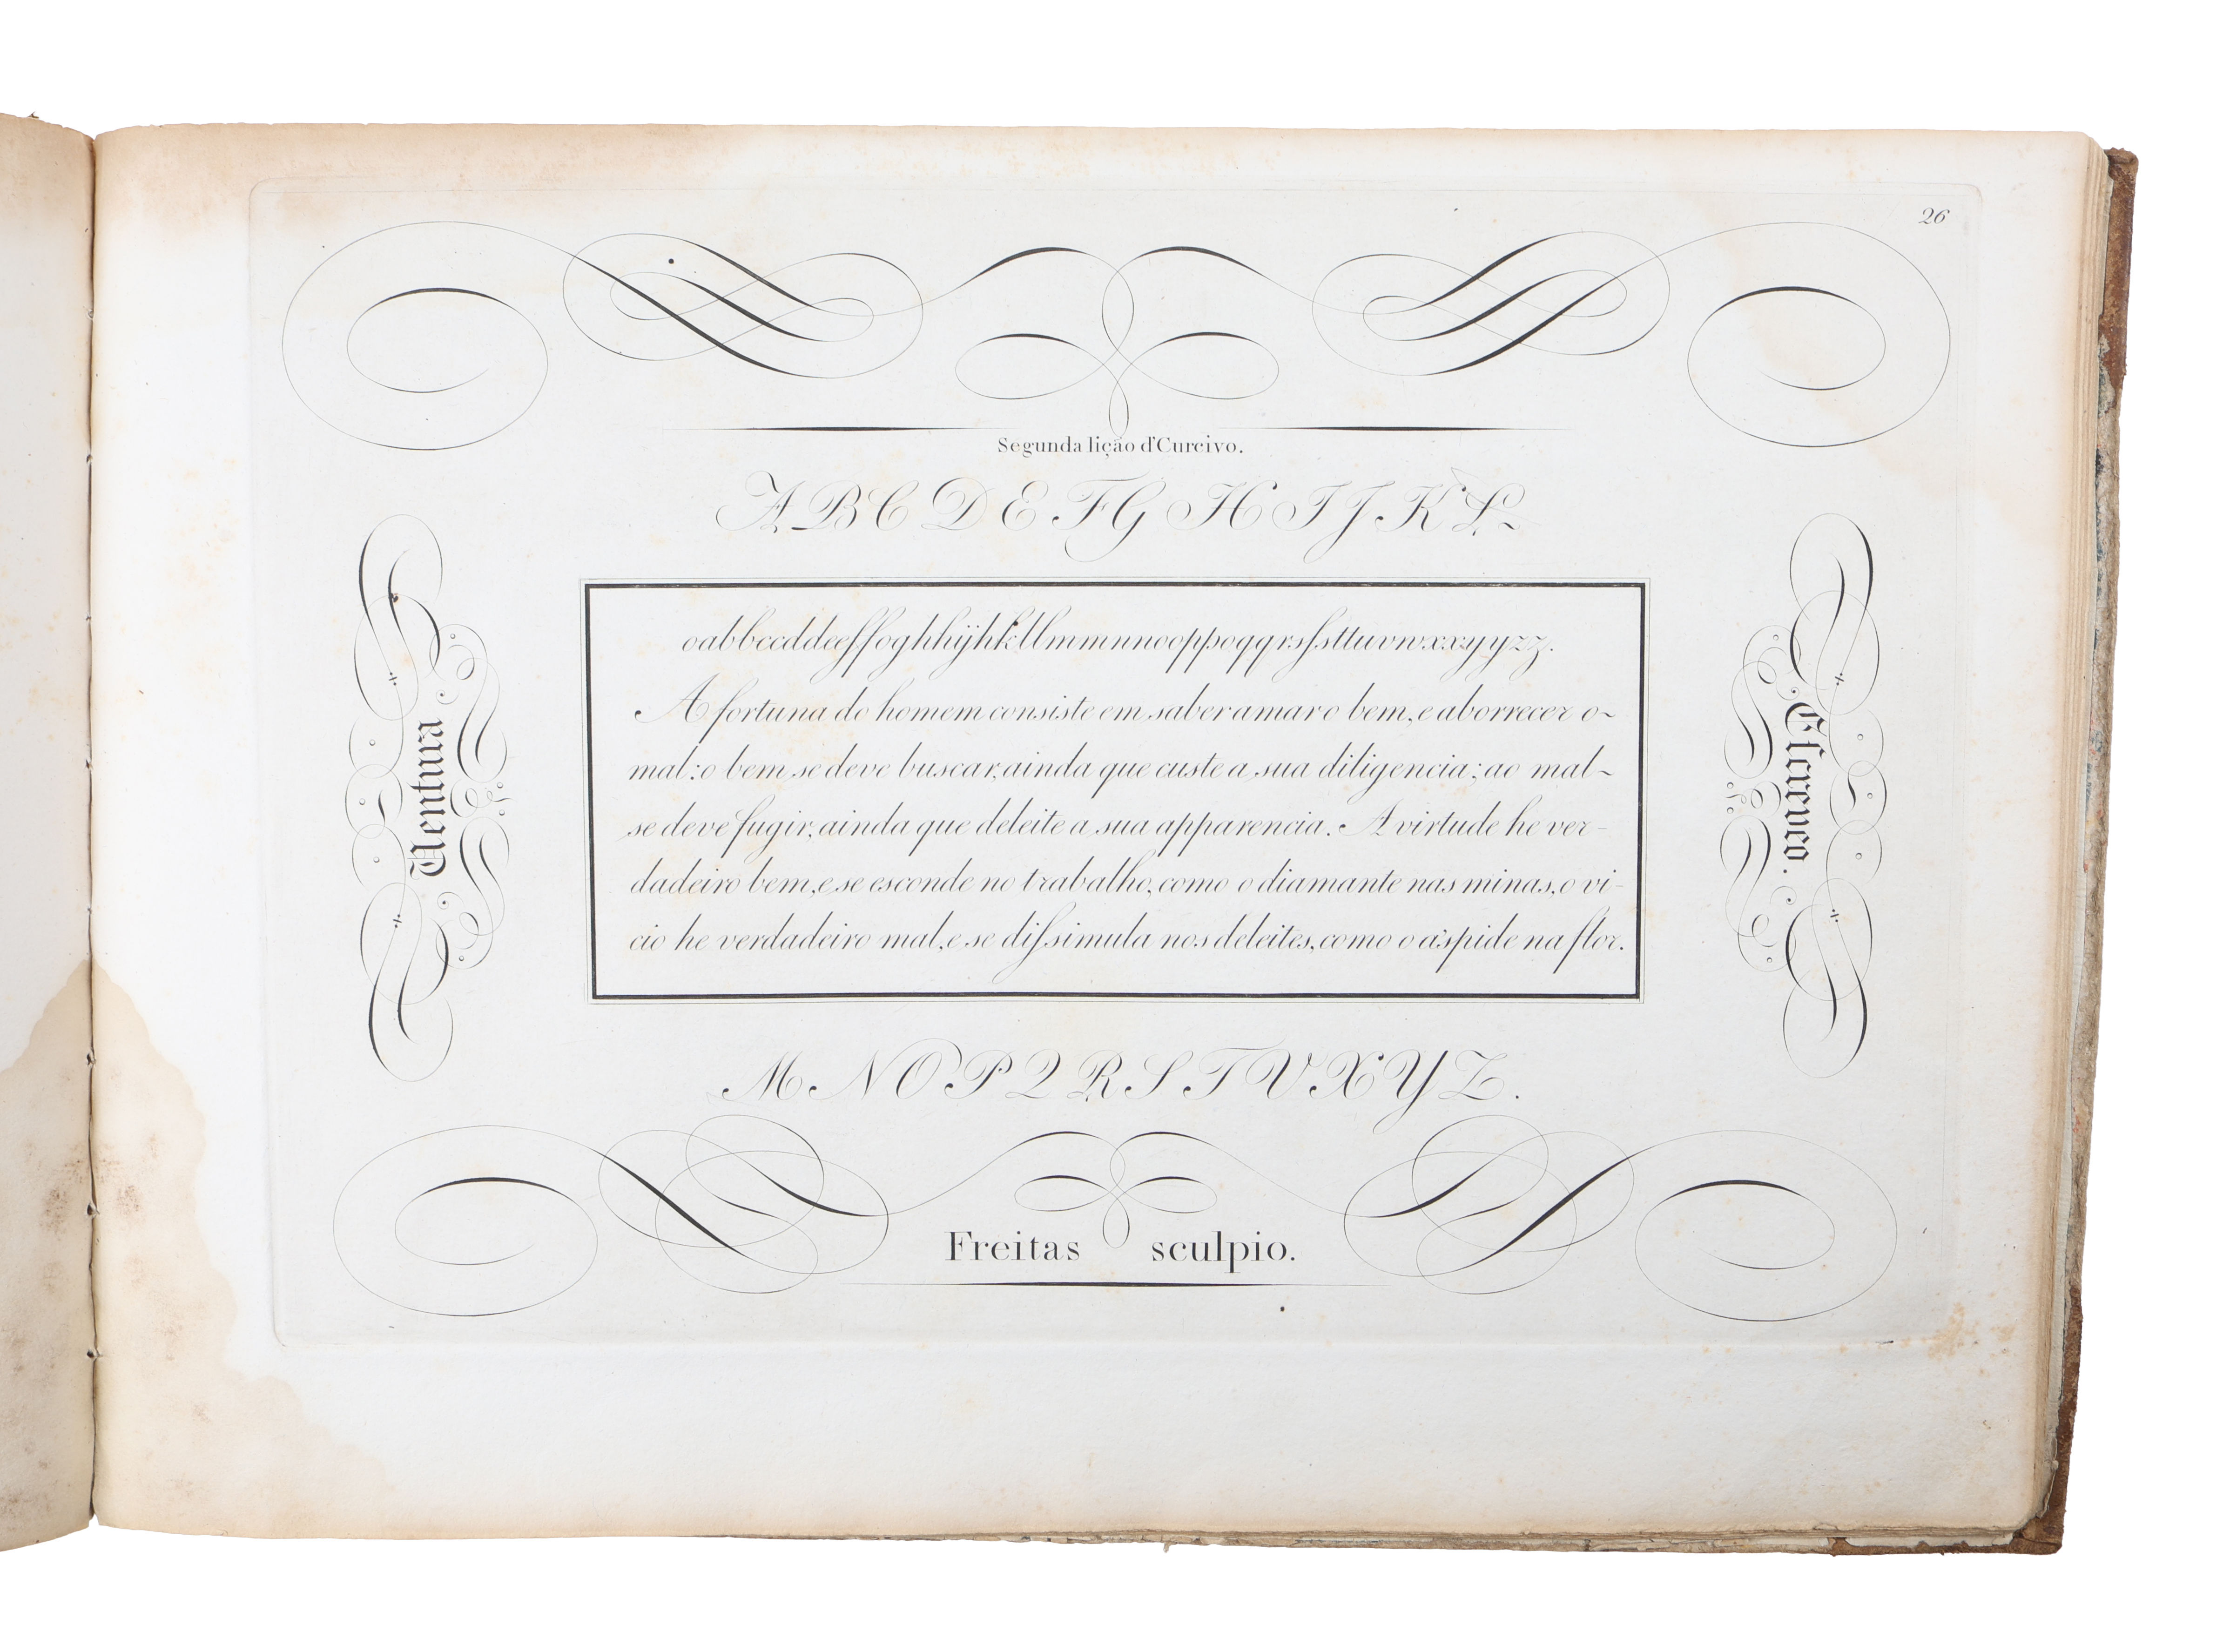 26
Segunda lição d'Curcivo.
A B C D E F G H I J K L
Ventura
oabbccddeeffoghhijhkllmmnnooppoqqrsſsttuvwxxyyzz.
A fortuna do homem consiste em saber amar o bem, e aborrecer o
mal: o bem se deve buscar, ainda que custe a sua diligencia; ao mal
se deve fugir, ainda que deleite a sua apparencia. A virtude he ver-
dadeiro bem, e se esconde no trabalho, como o diamante nas minas, o vi-
cio he verdadeiro mal, e se diſsimula nos deleites, como o áspide na flor.
Eſcreveo.
M N O P Q R S T V X Y Z.
Freitas sculpio.